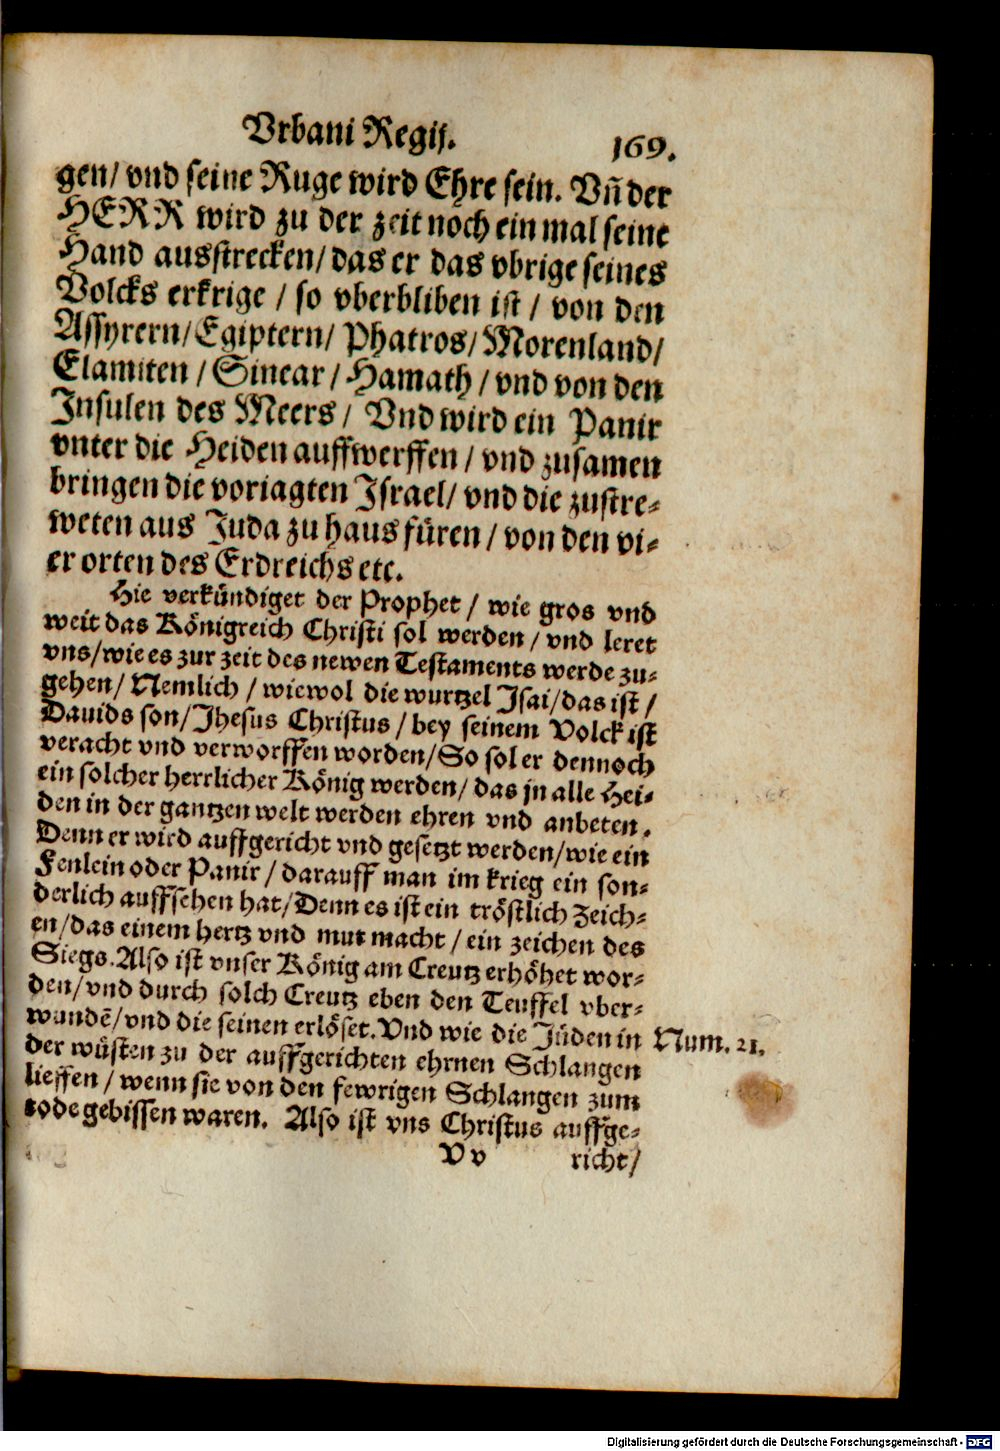 Vrbani Regij.
169.
gen/ vnd seine Ruge wird Ehre sein. Vñ der
HERR wird zu der zeit noch ein mal seine
Hand ausstrecken/ das er das vbrige seines
Volcks erkrige / so vberbliben ist / von den
Assyrern/ Egiptern/ Phatros/ Morenland/
Elamiten / Sinear / Hamath / vnd von den
Insulen des Meers / Vnd wird ein Panir
vnter die Heiden auffwerffen / vnd zusamen
bringen die voriagten Israel/ vnd die zustre-
weten aus Juda zu haus füren / von den vi-
er orten des Erdreichs etc.
Hie verkündiget der Prophet / wie gros vnd
weit das Königreich Christi sol werden / vnd leret
vns/ wie es zur zeit des newen Testaments werde zu-
gehen/ Nemlich / wiewol die wurtzel Isai/ das ist /
Dauids son/ Jhesus Christus / bey seinem Volck ist
veracht vnd verworffen worden/ So sol er dennoch
ein solcher herrlicher König werden/ das jn alle Hei-
den in der gantzen welt werden ehren vnd anbeten.
Denn er wird auffgericht vnd gesetzt werden/ wie ein
Fenlein oder Panir / darauff man im krieg ein son-
derlich auffsehen hat/ Denn es ist ein tröstlich Zeich-
en/ das einem hertz vnd mut macht / ein zeichen des
Siegs. Also ist vnser König am Creutz erhöhet wor-
den/ vnd durch solch Creutz eben den Teuffel vber-
wundē/ vnd die seinen erlöset. Vnd wie die Jüden in
Num. 21.
der wüsten zu der auffgerichten ehrnen Schlangen
lieffen / wenn sie von den fewrigen Schlangen zum
tode gebissen waren. Also ist vns Christus auffge-
V v
richt/
Digitalisierung gefördert durch die Deutsche Forschungsgemeinschaft - DFG